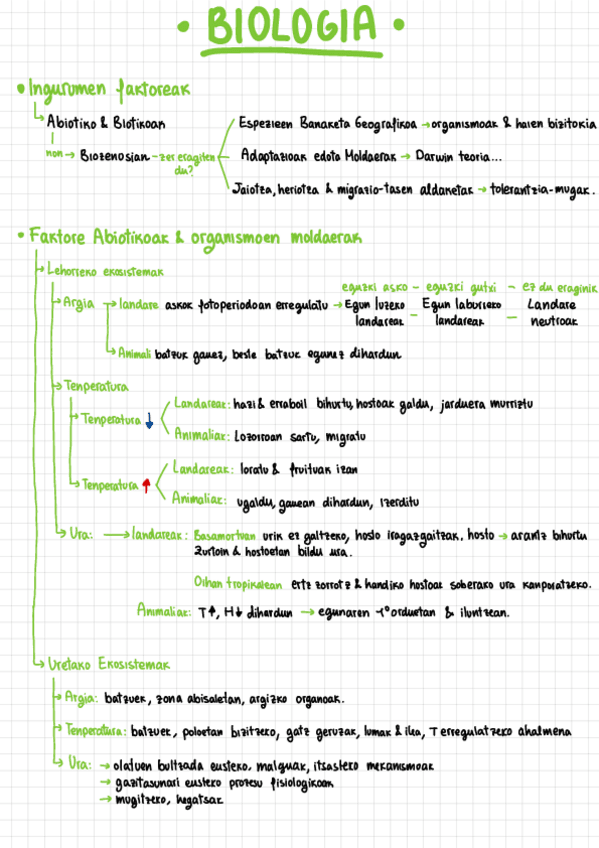 • BIOLOGIA •
• Ingurumen faktoreak
↳ Abiotiko & Biotikoak
non → Biozenosian - zer eragiten du?
Espezieen Banaketa Geografikoa → organismoak & haien bizitokia
Adaptazioak edota Moldaerak → Darwin teoria...
Jaiotza, heriotza & migrazio-tasen aldaketak → tolerantzia-mugak.
• Faktore Abiotikoak & organismoen moldaerak
↳ Lehorreko ekosistemak
eguzki asko - eguzki gutxi - ez du eraginik
↳ Argia → landare askok fotoperiodoan erregulatu → Egun luzeko landareak - Egun laburreko landareak - Landare neutroak
↳ Animali batzuk gauez, beste batzuk egunez dihardun
↳ Tenperatura
↳ Tenperatura ↓
Landareak: hazi & erraboil bihurtu, hostoak galdu, jarduera murriztu
Animaliak: Lozorroan sartu, migratu
↳ Tenperatura ↑
Landareak: loratu & fruituak izan
Animaliak: ugaldu, gauean dihardun, izerditu
↳ Ura: → landareak: Basamortuan urik ez galtzeko, hosto iragazgaitzak, hosto → arantz bihurtu
Zurtoin & hostoetan bildu ura.
Oihan tropikalean ertz zorrotz & handiko hostoak soberako ura kanporatzeko.
Animaliak: T↑, H↓ dihardun → egunaren 1º orduetan & iluntzean.
↳ Uretako Ekosistemak
↳ Argia: batzuek, zona abisaletan, argizko organoak.
↳ Tenperatura: batzuek, poloetan bizitzeko, gatz geruzak, lumak & ilea, T erregulatzeko ahalmena
↳ Ura: → olatuen bultzada eusteko, malguak, itsasteko mekanismoak
→ gazitasunari eusteko prozesu fisiologikoak
→ mugitzeko, hegatsak